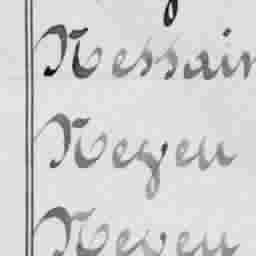 Nessain
Neyen
Neyen